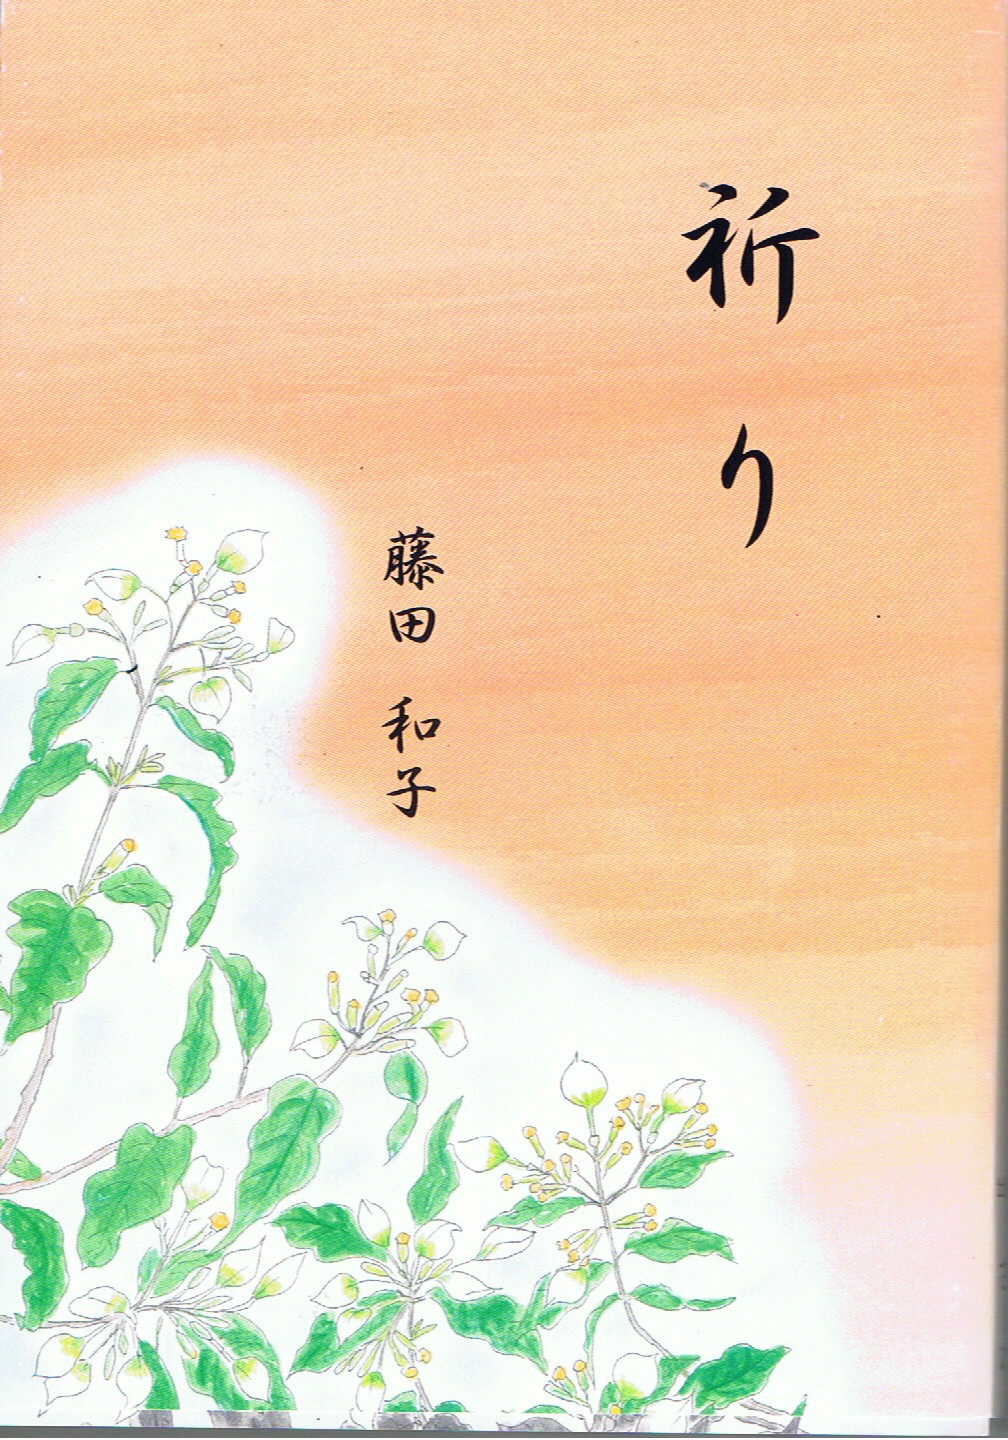 祈り
藤田 和子